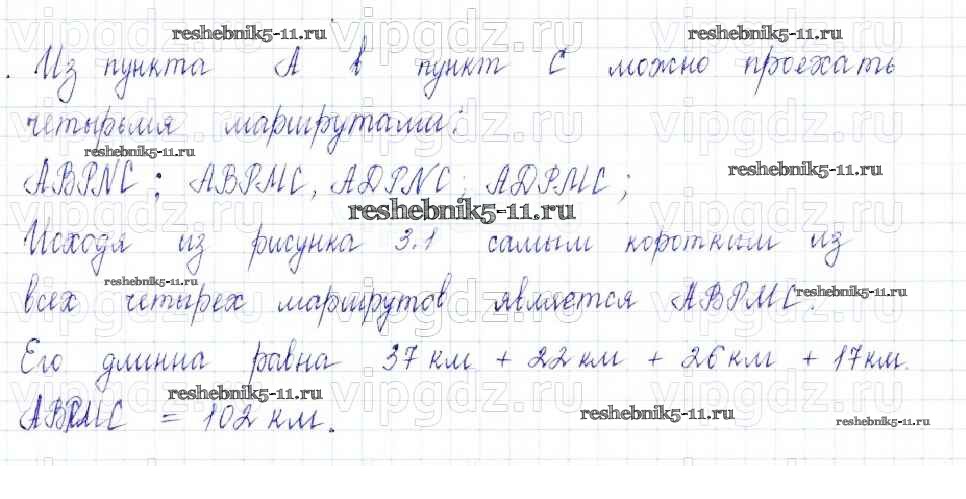 reshebnik5-11.ru
. Из пункта А в пункт С можно проехать
четырьмя маршрутами:
reshebnik5-11.ru
ABPNC; ABPMC, ADPNC; ADPMC;
reshebnik5-11.ru
reshebnik5-11.ru
Исходя из рисунка 3.1 самым коротким из
reshebnik5-11.ru
всех четырех маршрутов является ABPMC.
reshebnik5-11.ru
Его длинна равна 37 км + 22 км + 26 км + 17 км.
reshebnik5-11.ru
ABPMC = 102 км.
reshebnik5-11.ru
reshebnik5-11.ru
vipgdz.ru vipgdz.ru vipgdz.ru
vipgdz.ru vipgdz.ru vipgdz.ru
vipgdz.ru vipgdz.ru vipgdz.ru
vipgdz.ru vipgdz.ru vipgdz.ru
vipgdz.ru vipgdz.ru vipgdz.ru